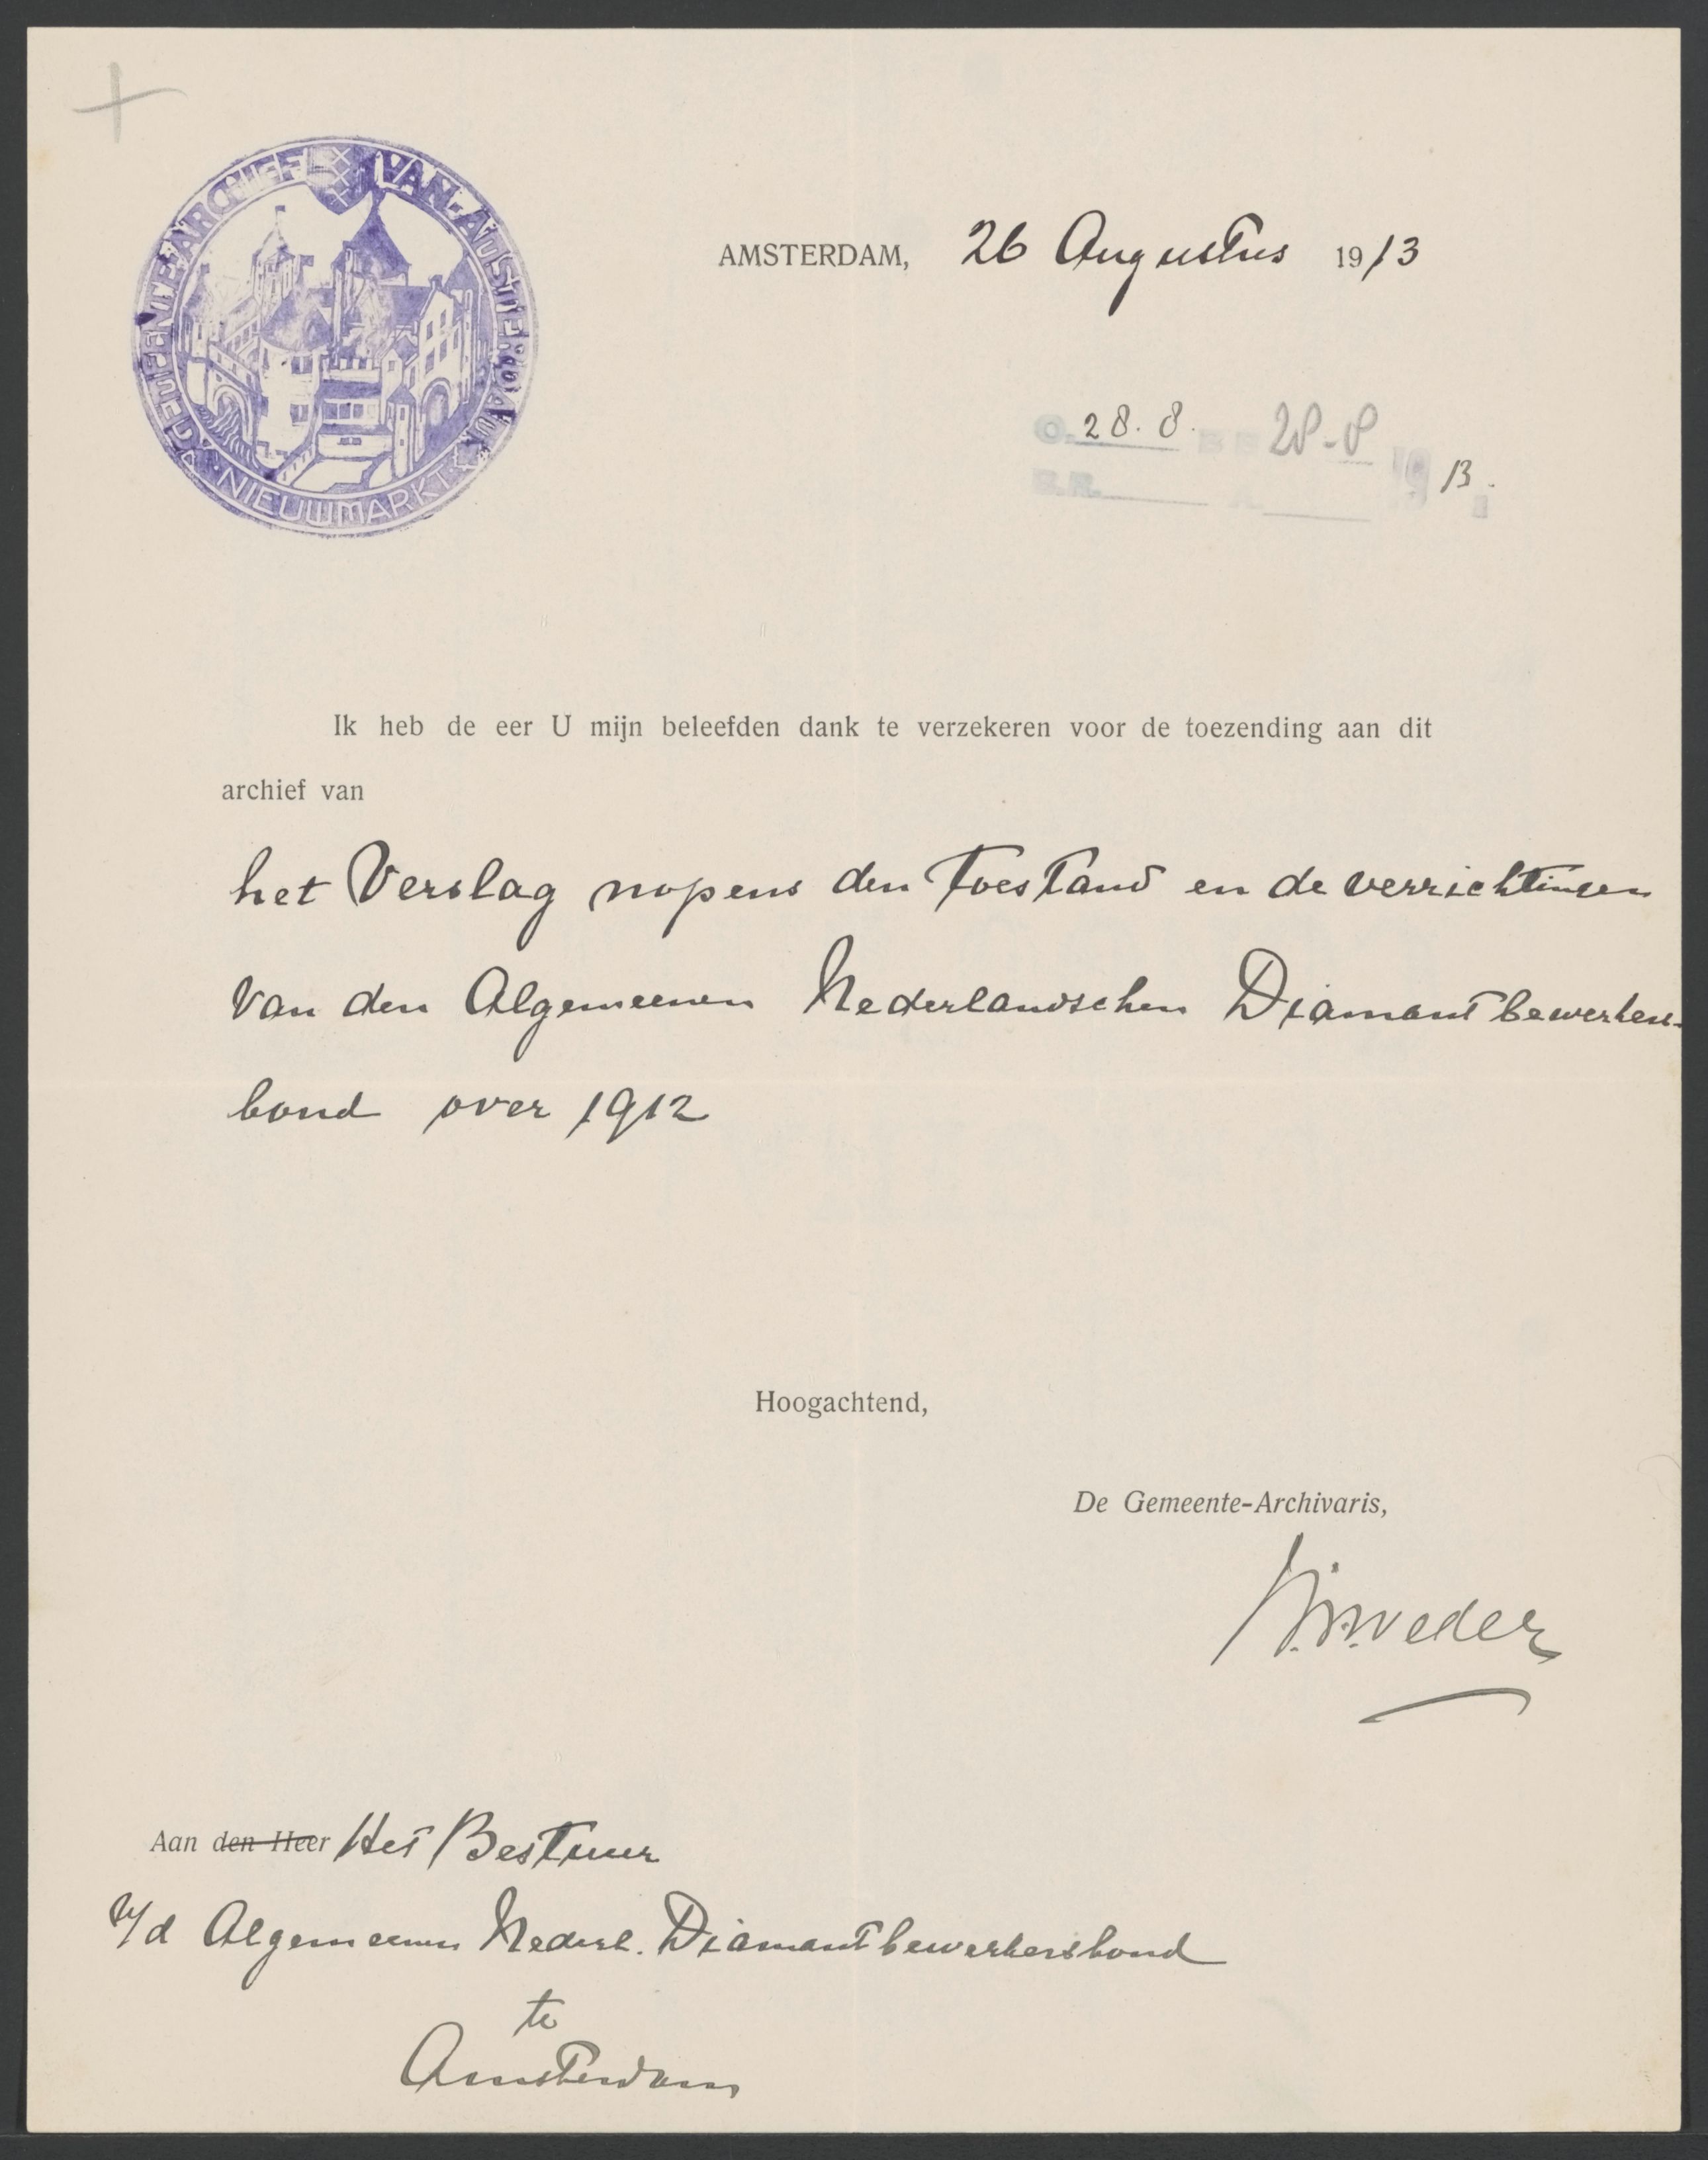 GEMEENTE ARCHIEF VAN AMSTERDAM
NIEUWMARKT
AMSTERDAM, 26 Augustus 1913
O. 28.8. B B 28-8
B.R. A. 1913.
Ik heb de eer U mijn beleefden dank te verzekeren voor de toezending aan dit
archief van
het Verslag nopens den Toestand en de verrichtingen
van den Algemeenen Nederlandschen Diamantbewerkers-
bond over 1912
Hoogachtend,
De Gemeente-Archivaris,
Aan den Heer Het Bestuur
v/d Algemeenen Nederl. Diamantbewerkersbond
te
Amsterdam